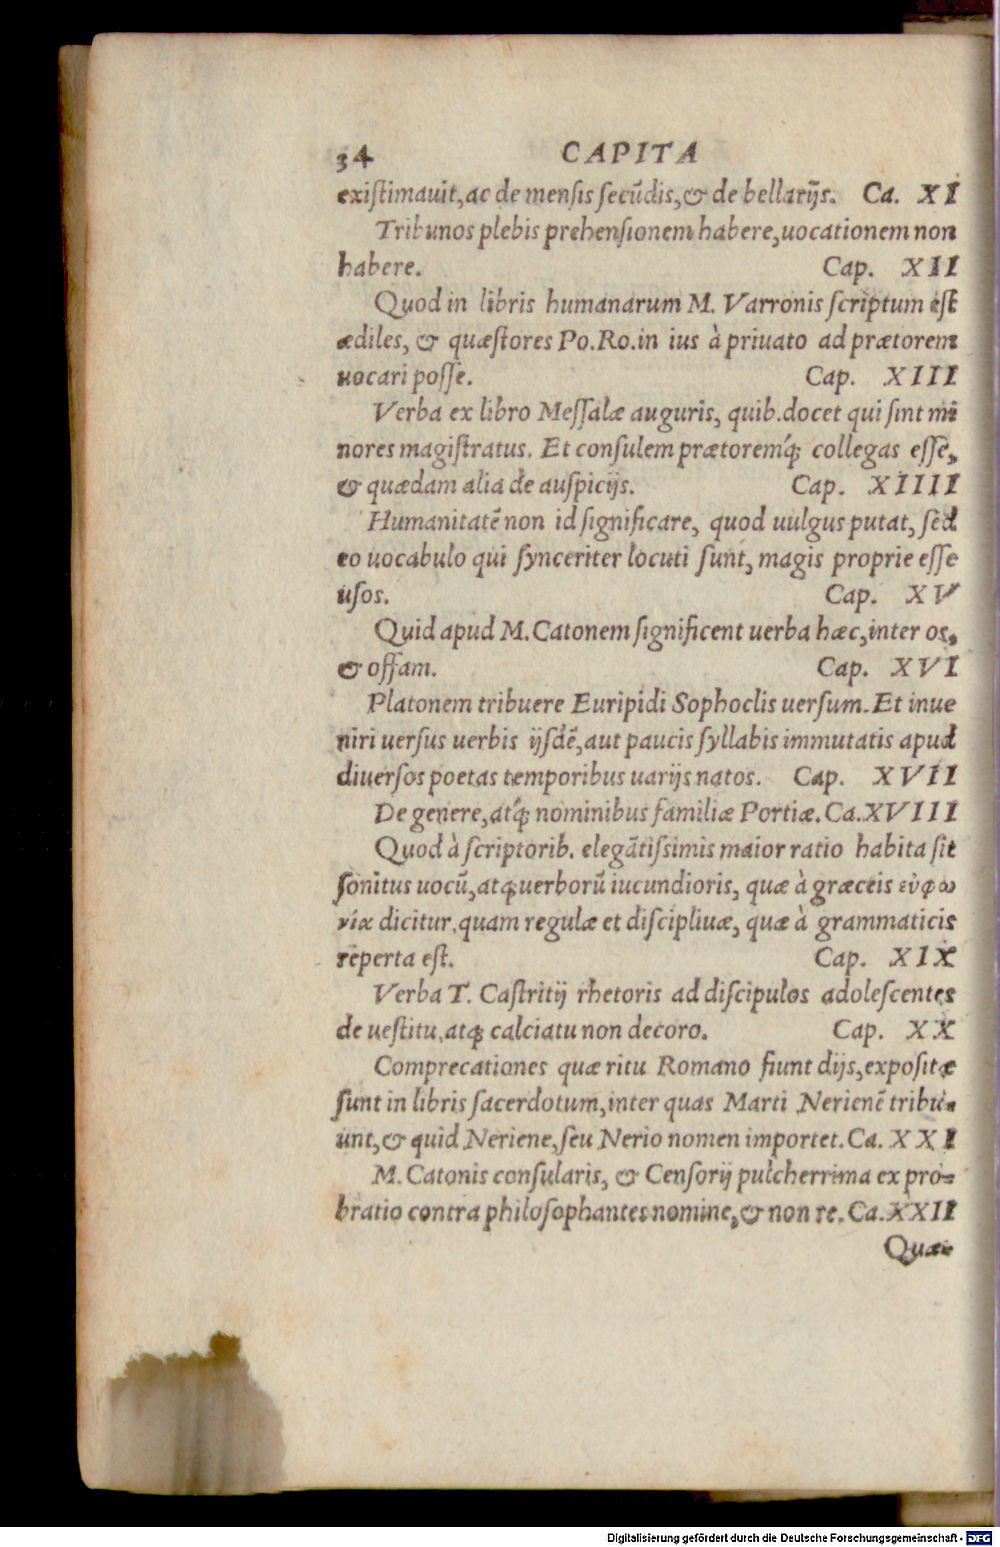 34 CAPITA
existimauit, ac de mensis secūdis, & de bellarijs. Ca. XI
Tribunos plebis prehensionem habere, uocationem non
habere. Cap. XII
Quod in libris humanarum M. Varronis scriptum est
ædiles, & quæstores Po.Ro.in ius à priuato ad prætorem
uocari posse. Cap. XIII
Verba ex libro Messalæ auguris, quib.docet qui sint mi
nores magistratus. Et consulem prætoremq́; collegas esse,
& quædam alia de auspicijs. Cap. XIIII
Humanitatē non id significare, quod uulgus putat, sed
eo uocabulo qui synceriter locuti sunt, magis proprie esse
usos. Cap. XV
Quid apud M. Catonem significent uerba hæc, inter os,
& offam. Cap. XVI
Platonem tribuere Euripidi Sophoclis uersum. Et inue
niri uersus uerbis ijsdē, aut paucis syllabis immutatis apud
diuersos poetas temporibus uarijs natos. Cap. XVII
De genere, atq́; nominibus familiæ Portiæ. Ca.XVIII
Quod à scriptorib. elegātissimis maior ratio habita sit
sonitus uocū, atq; uerborū iucundioris, quæ à græcis εὐφω
νία dicitur, quam regulæ et discipliuæ, quæ à grammaticis
reperta est. Cap. XIX
Verba T. Castritij rhetoris ad discipulos adolescentes
de uestitu, atq; calciatu non decoro. Cap. XX
Comprecationes quæ ritu Romano fiunt dijs, expositæ
sunt in libris sacerdotum, inter quas Marti Nerienē tribu-
unt, & quid Neriene, seu Nerio nomen importet. Ca. XXI
M. Catonis consularis, & Censorij pulcherrima ex pro-
bratio contra philosophantes nomine, & non re. Ca.XXII
Quæ-
Digitalisierung gefördert durch die Deutsche Forschungsgemeinschaft - DFG